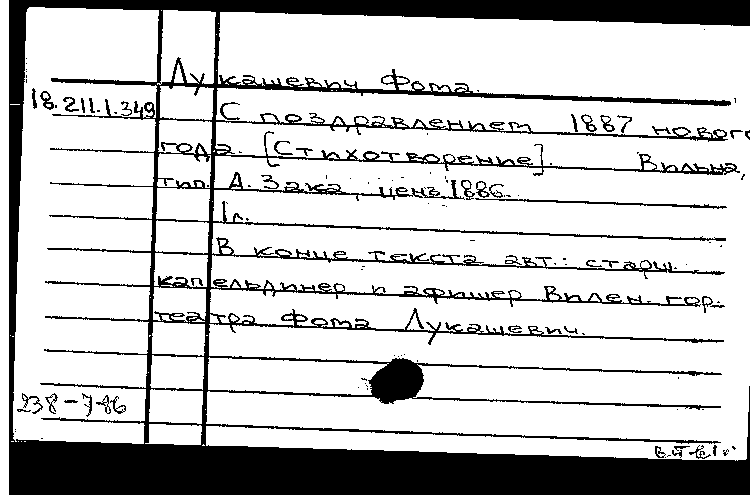 Лукашевич, Фома.
18.211.1.349 С поздравлением 1887 нового
года. [Стихотворение]. Вильна,
тип. А. Зака, ценз. 1886.
1 л.
В конце текста авт.: старш.
капельдинер и афишер Вилен. гор.
театра Фома Лукашевич.
238-7-86